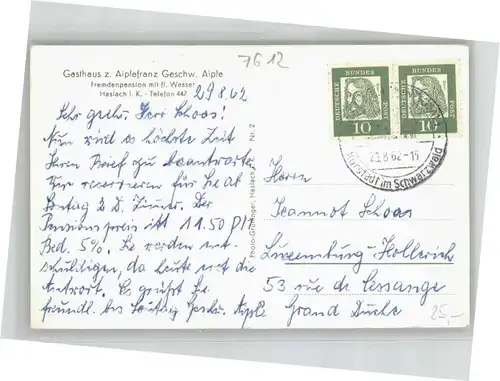 7612
Gasthaus z. Aiplefranz Geschw. Aiple
Fremdenpension mit fl. Wasser
Haslach i. K. - Telefon 447
29.8.62
Sehr geehr. Herr Schoos!
Nun wird es höchste Zeit
Ihren Brief zu beantworten
Wir reservieren für Sie ab
Sontag 2 D. Zimmer. Der
Pensionspreis ist 11.50 DM
Bed. 5%. Sie werden ent-
schuldigen, da heute erst die
Antwort. Es grüsst Sie
freundl. bis Sonntag Geschw. Aiple
Photo-Grüninger, Haslach i. K. Nr. 2
DEUTSCHE BUNDES POST
10
DEUTSCHE BUNDES POST
10
29.8.62-15
im Schwarzwald
Herrn
Jeannot Schoos
Luxemburg-Hollerich
53 rue de Cessange
Grand Duché
25,-